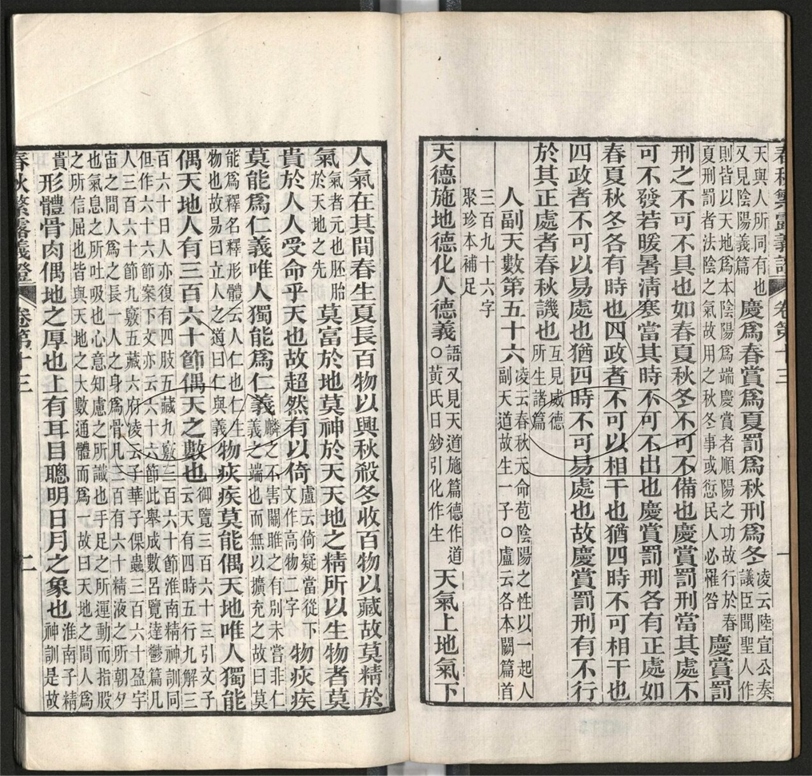 春秋繁露義證 卷第十三 一
天與人所同有也
又見陰陽義篇
慶爲春賞爲夏罰爲秋刑爲冬
凌云陸宣公奏
議臣聞聖人作
則皆以天地為本陰陽為端慶賞者順陽之功故行於春
夏刑罰者法陰之氣故用之秋冬事或愆民人必罹咎
慶賞罰
刑之不可不具也如春夏秋冬不可不備也慶賞罰刑當其處不
可不發若暖暑清寒當其時不可不出也慶賞罰刑各有正處如
春夏秋冬各有時也四政者不可以相干也猶四時不可相干也
四政者不可以易處也猶四時不可易處也故慶賞罰刑有不行
於其正處者春秋譏也
互見威德
所生諸篇
人副天數第五十六
凌云春秋元命苞陰陽之性以一起人
副天道故生一子○盧云各本闕篇首
三百九十六字
聚珍本補足
天德施地德化人德義
語又見天道施篇德作道
○黃氏日鈔引化作生
天氣上地氣下
人氣在其間春生夏長百物以興秋殺冬收百物以藏故莫精於
氣
氣者元也胚胎
於天地之先
莫富於地莫神於天天地之精所以生物者莫
貴於人人受命乎天也故超然有以倚
盧云倚疑當從下
文作高物二字
物疢疾
莫能爲仁義唯人獨能爲仁義
麟之不害關雎之有別未嘗非仁
義之端也而無以擴充之故曰莫
能爲釋名釋形體云人仁也仁生
物也故易曰立人之道曰仁與義
物疢疾莫能偶天地唯人獨能
偶天地人有三百六十節偶天之數也
御覽三百六十三引文子
云天有四時五行九解三
百六十日人亦復有四肢五藏九竅三百六十節淮南精神訓同
但作六十六節案下文亦云六十六節此舉成數呂覽達鬱篇凡
人三百六十節九竅五藏六府凌云子華子倮蟲三百六十盈宇
宙之間人爲之長一人之身爲骨凡三百有六十精液之所朝夕
也氣息之所吐吸也心意知慮之所識也手足之所運動而指股
之所信屈也皆與天地之大數通體而爲一故曰天地之間人爲
貴
形體骨肉偶地之厚也上有耳目聰明日月之象也
淮南子精
神訓是故
春秋繁露義證 卷第十三 二